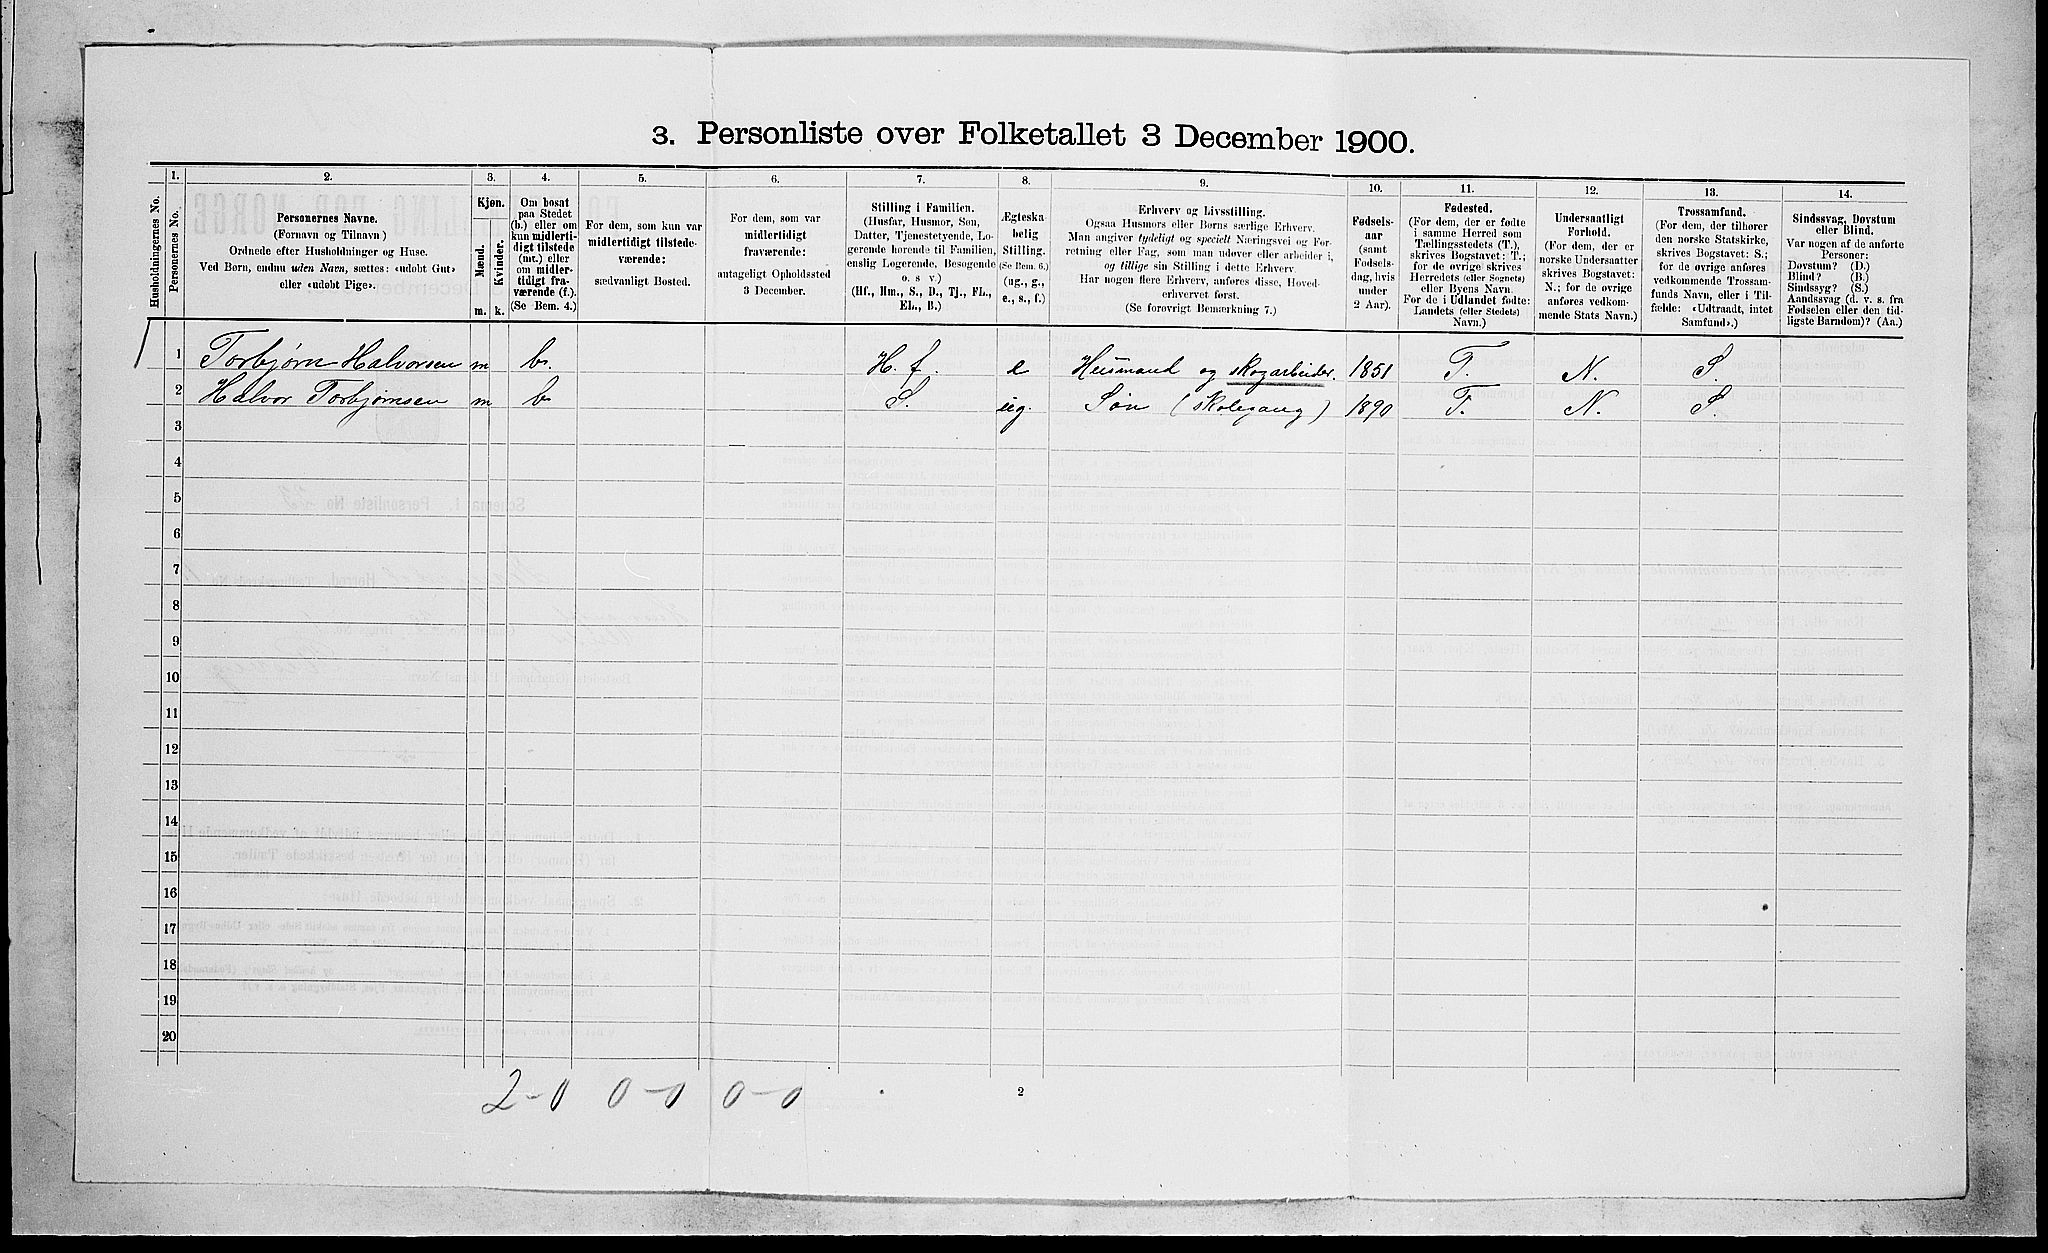 3. Personliste over Folketallet 3 December 1900.
1. 2. 3. 4. 5. 6. 7. 8. 9. 10. 11. 12. 13. 14.
Husholdningernes No.
Personernes No.
Personernes Navne.
(Fornavn og Tilnavn)
Ordnede efter Husholdninger og Huse.
Ved Børn, endnu uden Navn, sættes: «udøbt Gut»
eller «udøbt Pige».
Kjøn.
Mænd.
Kvinder.
m. k.
Om bosat
paa Stedet
(b.) eller om
kun midlerti-
digt tilstede
(mt.) eller
om midler-
tidigt fra-
værende (f.).
(Se Bem. 4.)
For dem, som kun var
midlertidigt tilstede-
værende:
sædvanligt Bosted.
For dem, som var
midlertidigt
fraværende:
antageligt Opholdssted
3 December.
Stilling i Familien.
(Husfar, Husmor, Søn,
Datter, Tjenestetyende, Lo-
gerende hørende til Familien,
enslig Logerende, Besøgende
o. s. v.)
(Hf., Hm., S., D., Tj., FL.,
EL., B.)
Ægteska-
belig
Stilling.
(Se Bem. 6.)
(ug., g.,
e., s., f.)
Erhverv og Livsstilling.
Ogsaa Husmors eller Børns særlige Erhverv.
Man angiver tydeligt og specielt Næringsvei og For-
retning eller Fag, som man udøver eller arbeider i,
og tillige sin Stilling i dette Erhverv.
Har nogen flere Erhverv, anføres disse, Hoved-
erhvervet først.
(Se forøvrigt Bemærkning 7.)
Fødsels-
aar
(samt
Fødsels-
dag, hvis
under
2 Aar).
Fødested.
(For dem, der er fødte
i samme Herred som
Tællingsstedets (T.),
skrives Bogstavet: T.;
for de øvrige skrives
Herredets (eller Sognets)
eller Byens Navn.
For de i Udlandet fødte:
Landets (eller Stedets)
Navn.)
Undersaatligt
Forhold.
(For dem, der er
norske Undersaatter
skrives Bogstavet:
N.; for de øvrige
anføres vedkom-
mende Stats Navn.)
Trossamfund.
(For dem, der tilhører
den norske Statskirke,
skrives Bogstavet: S.;
for de øvrige anføres
vedkommende Trossam-
funds Navn, eller i Til-
fælde: «Udtraadt, intet
Samfund».)
Sindssvag, Døvstum
eller Blind.
Var nogen af de anførte
Personer:
Døvstum? (D.)
Blind? (B.)
Sindssyg? (S.)
Aandssvag (d. v. s. fra
Fødselen eller den tid-
ligste Barndom)? (Aa.)
1 Torbjørn Halvorsen m b. H. f. e Husmand og skogarbeider. 1851 T. N. S.
2 Halvor Torbjørnsen m b S. ug. Søn (skolegang) 1890 T. N. S.
3
4
5
6
7
8
9
10
11
12
13
14
15
16
17
18
19
20
2-0 0-0 0-0
2